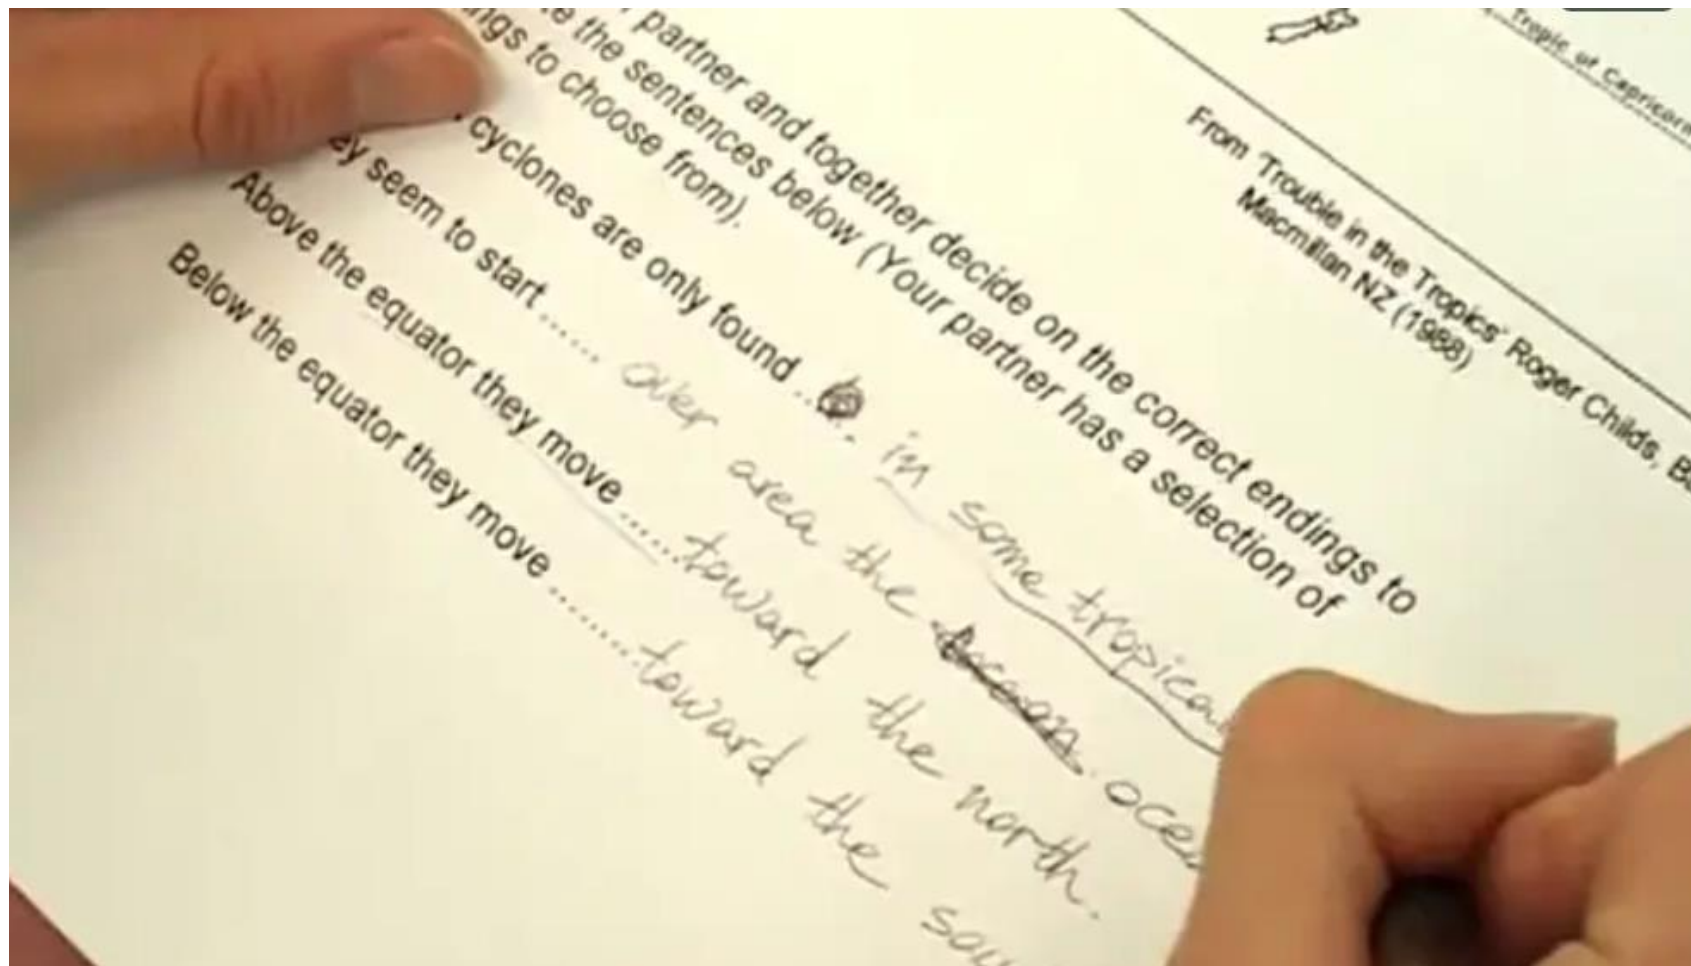 Tropic of Capricorn
From 'Trouble in the Tropics' Roger Childs,
Macmillan NZ (1988)
partner and together decide on the correct endings to
the sentences below (Your partner has a selection of
to choose from).
cyclones are only found ..... in some tropical
seem to start ..... over area the ocean. ocean
Above the equator they move ....... toward the north.
Below the equator they move ......... toward the